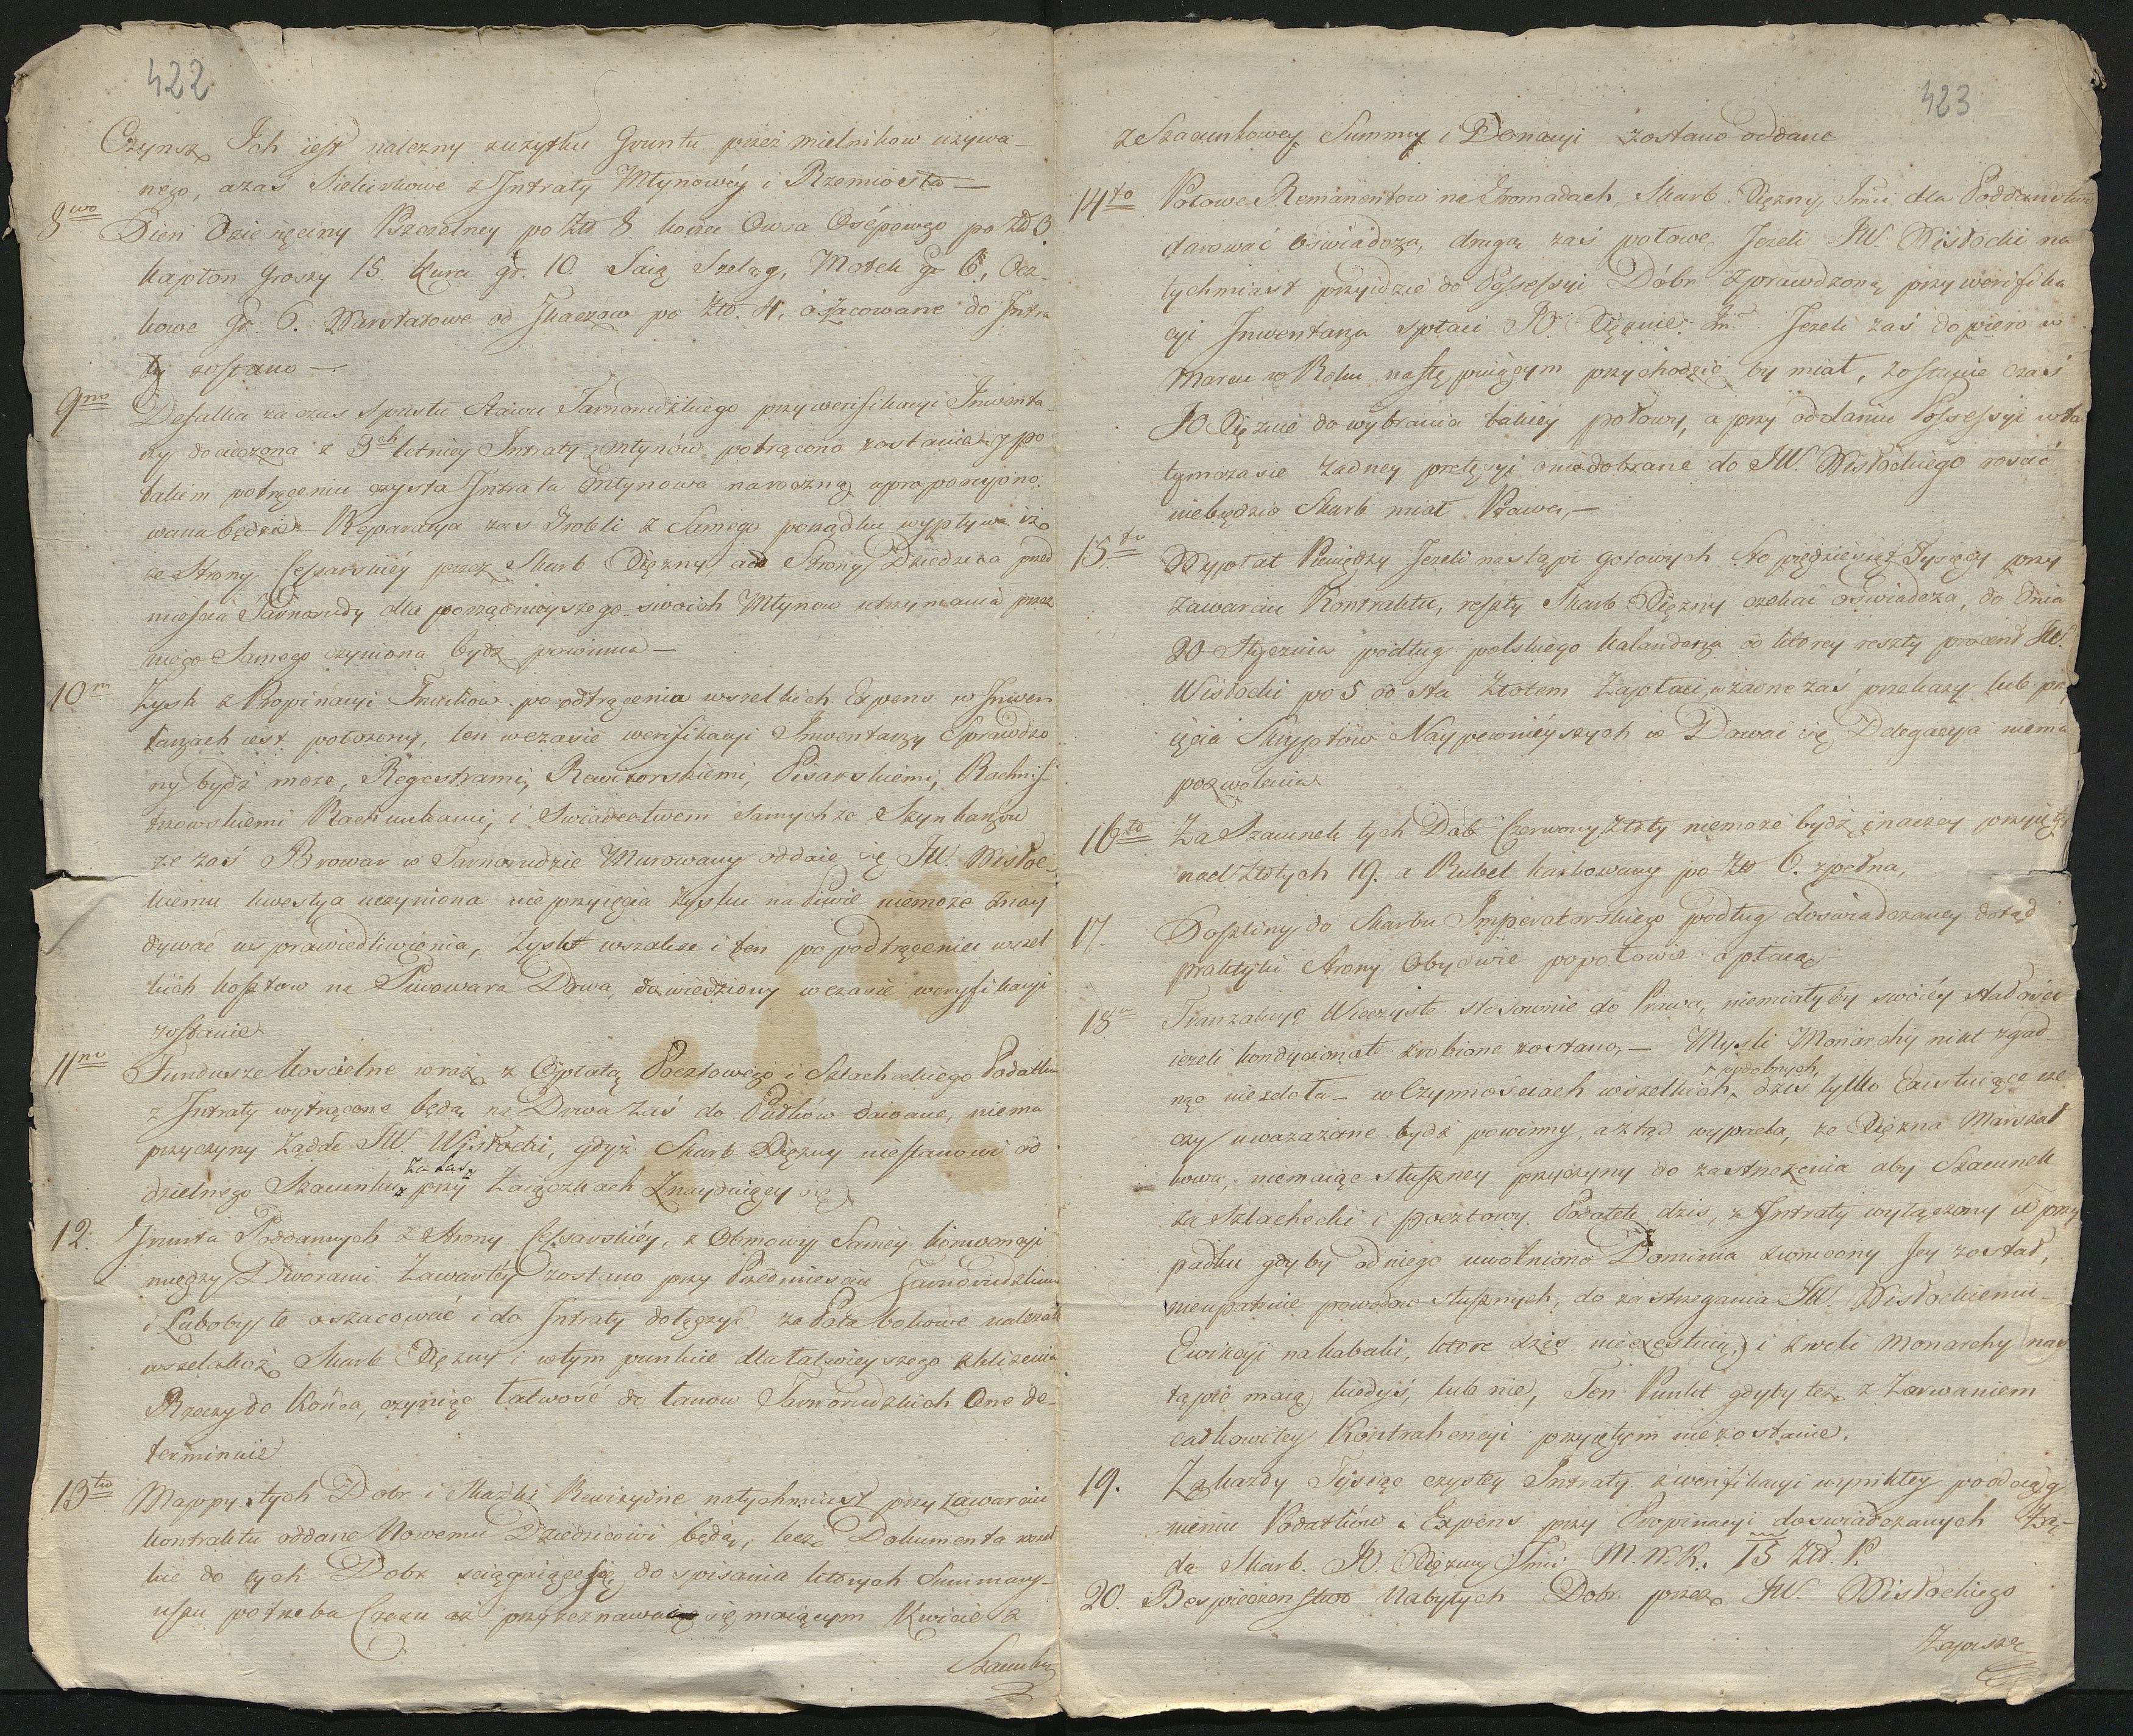 422
Czynsz Ich iest nalezny zuzytku Gruntu przez mielnikow uzywa-
nego, azaś Siekierkowe z Intraty Młynowéy i Rzemiosła —
8vo Dień Dziesięciny Pszczelney po Złł 8. korzec Owsa Osépowego po Złł 3
kapłon Groszy 15. kura gr. 10. Jaia Szeląg, Motek gr 6, Ocz-
kowe gr. 6. Warsztatowe od Tkaczow po Zło. 4, oszacowane do Intra
ty zostano —
9no Defalka za czas spustu stawu Tarnorudzkiego przy werifikacyi Inwenta-
rzy docieczona z 3ch letniey Intraty Młynów potrącono zostanie y po
takim potrąceniu czysta Intrata Młynowa na roczną uproporcyono-
wana będzie — Reparacya zas Grobli z samego porządku wypływa iż
ze strony Cesarskiéy przez Skarb Xiężny, a od Strony Dziedzica przed
miescia Tarnorudy dla porządnieyszego swoich Młynow utrzymania przez
niego samego czyniona bydź powinna —
10mo Zysk z Propinacyi Trunkow po odtrącenia wszelkich Expens w Inwen
tarzach iest położony, ten w czasie werifikacyi Inwentarzy Sprawdzo
ny bydź moze, Regestrami, Rewizorskiemi, Pisarskiemi, Rachmi-
strzowskiemi Rachunkami, i Swiadectwem samychze Szynkarzow
ze zaś Browar w Tarnorudzie Murowany oddaie się JW. Wisłoc-
kiemu kwestya uczyniona nie przyięcia zysku na Piwie niemoże znay
dywać usprawiedliwienia, Zysk wszakze i ten po podtrąceniu wszel
kich kosztow na Piwowara Drwa, dowiedziony w czasie weryfikacyi
zostanie
11no Fundusze kościelne wraz z Opłatą Pocztowego i Szlacheckiego Podatku
z Intraty wytrącone będą na Drwa zaś do Pułków dawane, niema
przyczyny żądać JW. Wisłocki, gdyż Skarb Xiężny niestanowi od
dzielnego Szacunku za Lasy przy Zaiączkach Znayduiącey się
12. Jnwta Poddannych z Strony Cesarskiéy, z Obmowy Samey konwencyi
między Dworami Zawartéy zostano przy Przedmiesciu Tarnorudzkim
i Lubobyste oszacować i do Intraty dołączyć za Pola bokowe należałoby
wszelakoż Skarb Xiężny i w tym punkcie dla łatwieyszego zbliżenia
Rzeczy do Końca, czyniąc łatwość do łanow Tarnorudzkich One de-
terminuie
13tio Mappy tych Dobr i Skazki Rewizyine natychmiast przy zawarciu
kontraktu oddane Nowemu Dziedzicowi będą, lecz Dokumenta wszel
kie do tych Dobr sciągaiące się, do spisania ktorych Summary-
uszu potrzeba Czasu aż przy zeznawać się maiącym Kwicie z
Szacunko
423
ze Szacunkowey Summy i Donacyi zostano oddane
14to Połowe Remanentow na Gromadach Skarb Xiężny Jmci dla Poddanstwa
darować oświadcza, drugą zaś połowę Jezeli JW. Wisłocki na
tychmiast przyidzie do Possessyi Dóbr zprawdzoną przy werifika
cyi Inwentarza spłaci JO. Xiężnie Jmci. Jezeli zaś dopiero w
Marcu w Roku następuiącym przychodzić by miał, zostanie czas
JO Xiężnie do wybrania takiéy połowy, a przy oddaniu Possessyi w ta
tymczasie zadney pretęsyi o niedobrane do JW. Wisłockiego rościć
niebędzie Skarb miał Prawa, —
15to Wypłat Pieniędzy Jezeli nastąpi gotowych sto pięćdziesiąt Tysięcy przy
Zawarciu Kontraktu, reszty Skarb Xiężny czekać oświadcza, do Dnia
20 Stycznia podług polskiego kalendarza od ktorey reszty procent JW.
Wisłocki po 5 od sta Złotem Zapłaci, w zadne zaś przekazy lub przy
ięcia Skryptow Naypewniéyszych w Dawać się Delegacya niema
pozwolenia
16to Za Szacunek tych Dób Czerwony Złoty niemoże bydź inaczey przyięty
nad Złotych 19. a Rubel karbowany po Złł 6. zpełna,
17. Poszliny do Skarbu Imperatorskiego podług doświadczaney dotąd
praktyki strony Obydwie popołowie opłacą —
18vo Tranzakcye Wieczyste stosownie do Prawa, niemiałyby swoiéy stałości
iezeli kondycionate zrobione zostano, — Mysli Monarchy nikt zgad-
nąc niezdoła — w Czynnościach wszelkich podobnych, dzis tylko Existuiące rze
czy uwazazane bydź powinny, a ztąd wypada, ze Xiężna Marszał
kowa, niemaiąc słuszney przyczyny do zastrzezenia aby Szacunek
za Szlachecki i pocztowy Podatek dzis, z Intraty wyłączony w przy
padku gdyby od niego uwolniono Dominia zwrucony Jey został,
nieupatruie powodow słusznych, do zastrzegania JW. Wisłockiemu
Ewikcyi na kabaki, ktore dziś nieexestuią i z woli Monarchy nas
tąpić maią kiedyś, lub nie, Ten Punkt gdyby tez z Zerwaniem
całkowitey Kontrahencyi przyiętym niezostanie.
19. Za kazdy Tysiąc czystey Intraty z werifikacyi wynikłey po odciąg
nieniu Podatków i Expens przy Propinacyi doświadczanych Zą-
da Skarb. JO. Xiężny Jmci M. W. K. 15 Złł. P.
20. Bespieczenstwo Nabytych Dobr przez JW. Wisłockiego
Zapisze